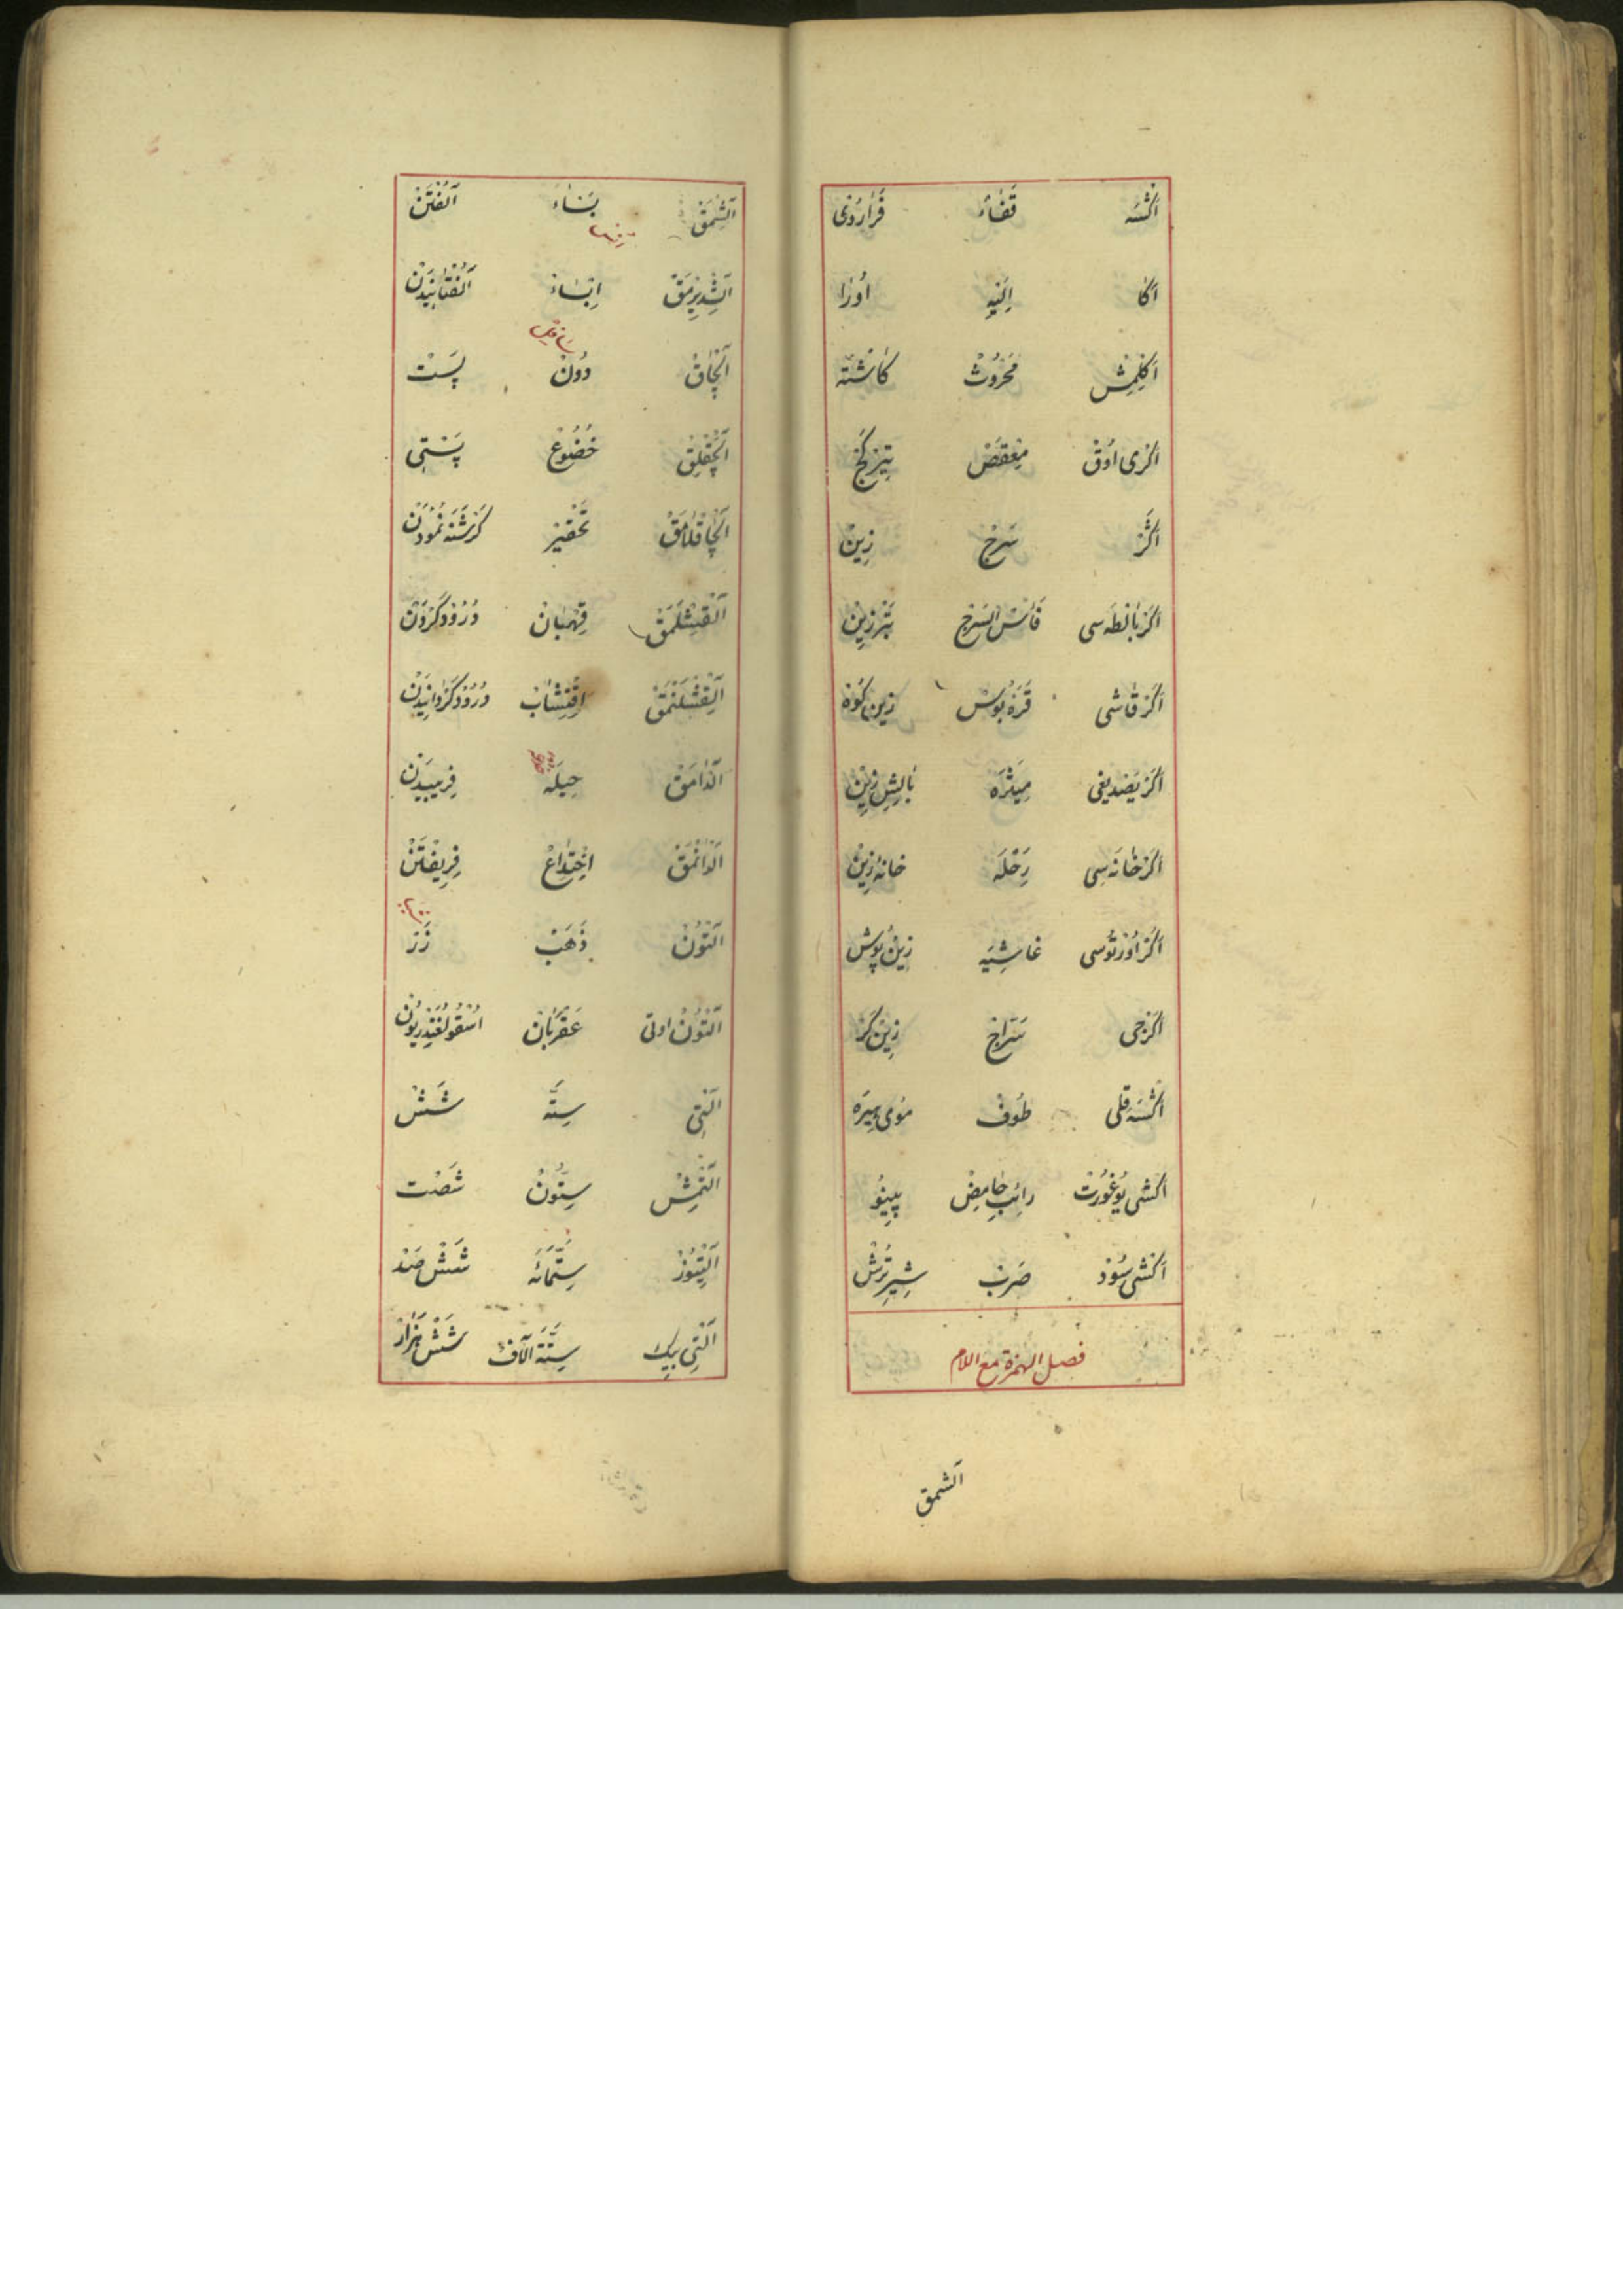 اَكْسَه قَفَاءْ فَرَارُوْى
اَكَا اِلَيْهِ اُوْرَا
اَكِلْمِشْ مَحْرُوْثْ كَاشْتَه
اَكْرِى اُوقْ مِعْقَصْ تِيْرِ كَجْ
اَكَرْ سَرْجْ زِيْنْ
اَكَر بَالْطَه سِى فَأْسُ السَّرْجِ تَبَرْزِيْنْ
اَكَر قَاشِى قَرَهْ بُوسْ زِيْن كُوْه
اَكَر يَصْدِيغِى مِيثَرَه بَالِشِ زِيْنْ
اَكَر خَانَه سِى رَحْلَه خَانَهٔ زِيْنْ
اَكَر اُورْتُوسِى غَاشِيَه زِيْنْ پُوشْ
اَكَرْجِى سَرَّاجْ زِيْنْ كَرْ
اَكْسَه قِلِى صُوفْ مُوىِ
اَكْشِى يُوغُورْتْ رَائِبِ حَامِضْ پِينُو
اَكْشِى سُوْدْ صَرَبْ شِيرِ تُرْشْ
فصل الهمزة مع اللام
آلشمق
آلِشْمَقْ بَسَاءْ آلُفْتَنْ
آلِشْدِيرْمَقْ اِبْسَاءْ آلُفْتَانِيدَنْ
آلْچَاقْ دُونْ پَسْتْ
آلْچَقْلِقْ خُضُوعْ پَسْتِى
آلْچَاقْلَامَقْ تَحْقِيرْ نُمُودَنْ
آلْقِشْلَمَقْ دُرُوْد كَرْدَنْ
آلْقِشْلَنْمَقْ دُرُوْد كَرْدَانِيدَنْ
آلْدَامَقْ حِيلَه فِرِيبِيدَنْ
آلْدَانْمَقْ اِخْتِدَاعْ فِرِيفْتَنْ
آلْتُونْ ذَهَبْ زَرْ
آلْتُونْ اوتى عَقْرُبَانْ اسْقُولُفَنْدِرِيُونْ
آلْتِى سِتَّه شَشْ
آلْتْمِشْ سِتُّونْ شَصْتْ
آلْتِيُوزْ سِتَّمَائَه شَشْ صَدْ
آلْتِى بِيكْ سِتَّةَ آلَافْ شَشْ هَزَارْ